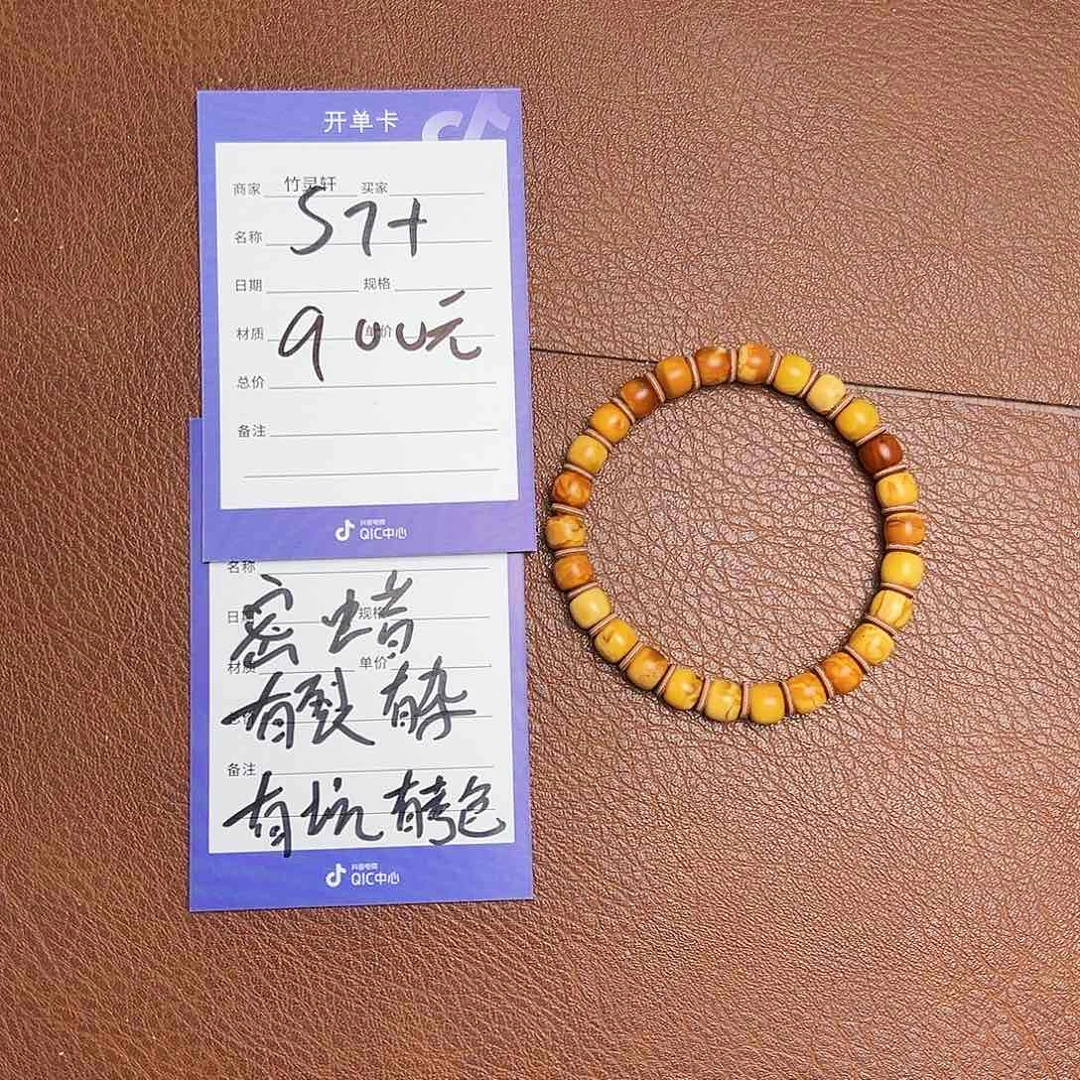 开单卡
商家 竹灵轩 买家
57+
名称
日期 规格
900元
材质 单价
总价
备注
抖音电商
QIC中心
名称
日期 规格
密蜡
材质 单价
有裂有杂
备注
有坑有烤色
抖音电商
QIC中心